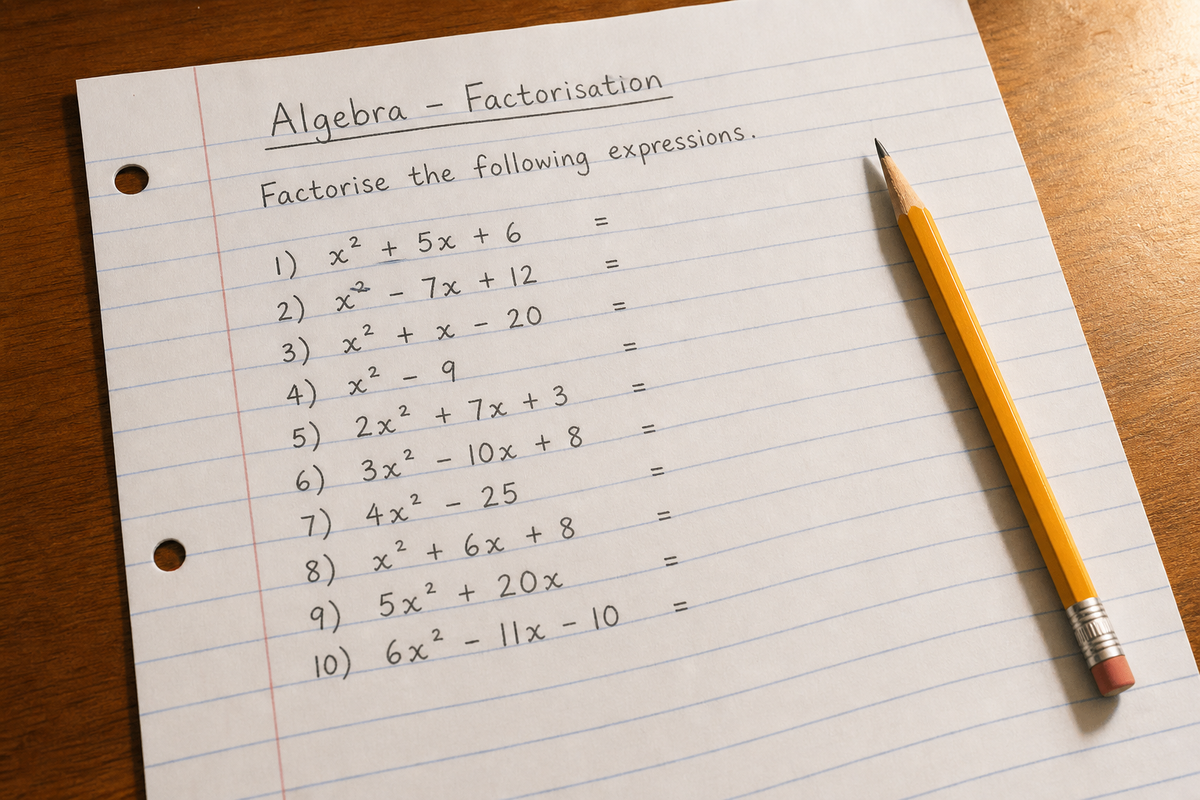 Algebra – Factorisation
Factorise the following expressions.
1) x² + 5x + 6 =
2) x² – 7x + 12 =
3) x² + x – 20 =
4) x² – 9 =
5) 2x² + 7x + 3 =
6) 3x² – 10x + 8 =
7) 4x² – 25 =
8) x² + 6x + 8 =
9) 5x² + 20x =
10) 6x² – 11x – 10 =